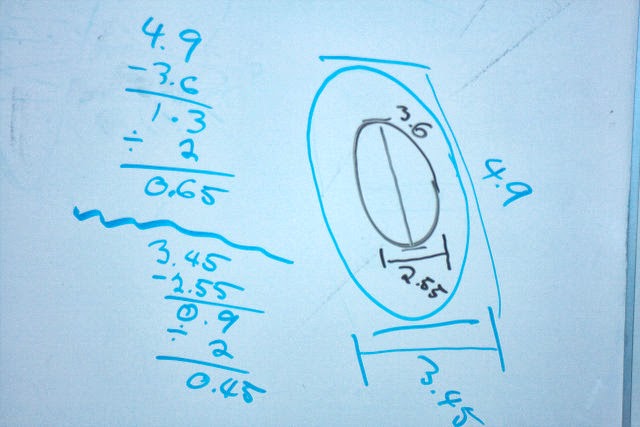 4.9
-3.6
1.3
÷ 2
0.65
3.45
-2.55
0.9
÷ 2
0.45
3.6
4.9
2.55
3.45